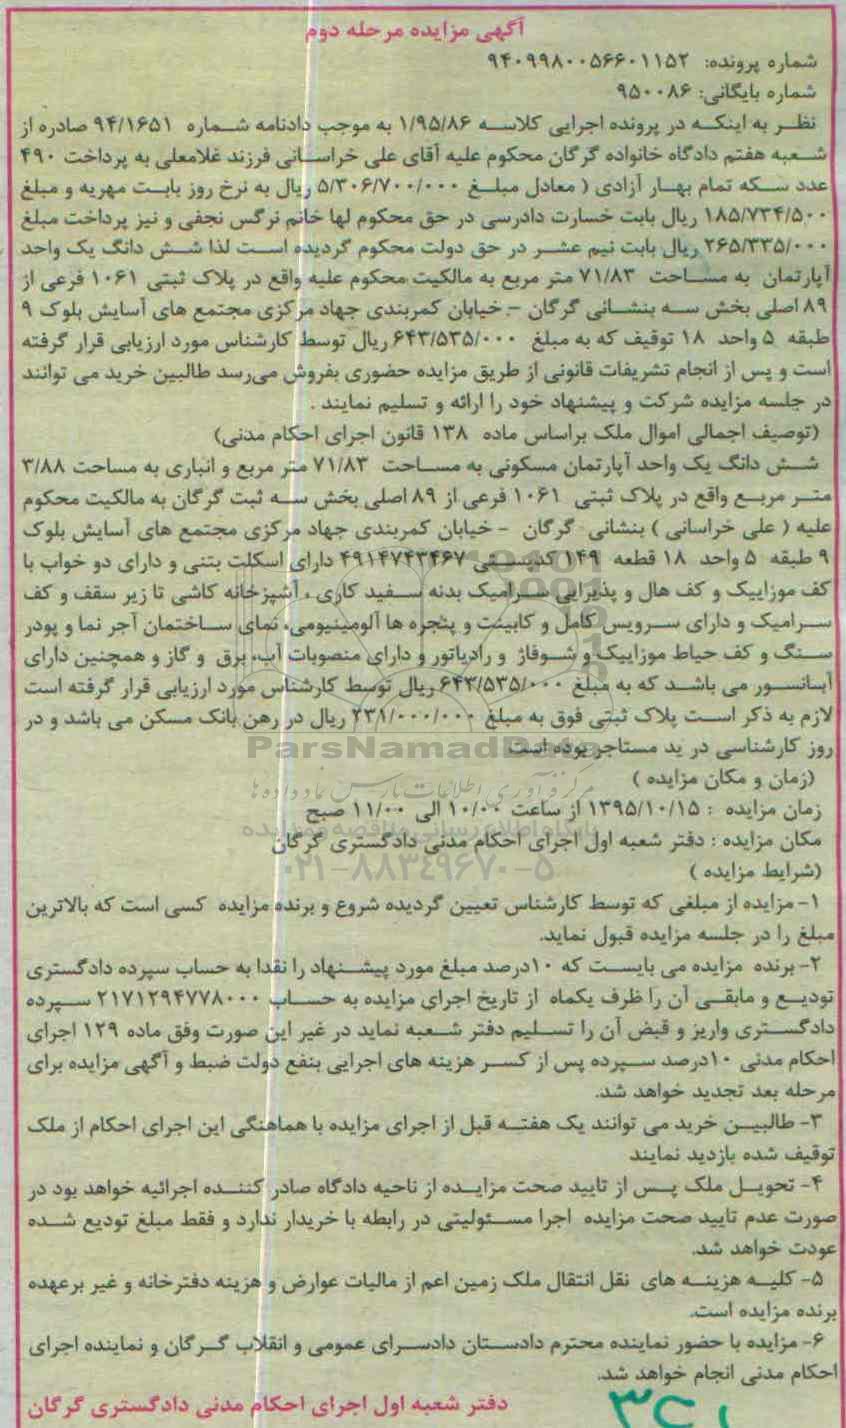 آگهی مزایده مرحله دوم
شماره پرونده: ۹۴۰۹۹۸۰۰۵۶۶۰۱۱۵۲
شماره بایگانی: ۹۵۰۰۸۶
نظر به اینکه در پرونده اجرایی کلاسه ۱/۹۵/۸۶ به موجب دادنامه شماره ۹۴/۱۶۵۱ صادره از
شعبه هفتم دادگاه خانواده گرگان محکوم علیه آقای علی خراسانی فرزند غلامعلی به پرداخت ۴۹۰
عدد سکه تمام بهار آزادی ( معادل مبلغ ۵/۳۰۶/۷۰۰/۰۰۰ ریال به نرخ روز بابت مهریه و مبلغ
۱۸۵/۷۳۴/۵۰۰ ریال بابت خسارت دادرسی در حق محکوم لها خانم نرگس نجفی و نیز پرداخت مبلغ
۲۶۵/۳۳۵/۰۰۰ ریال بابت نیم عشر در حق دولت محکوم گردیده است لذا شش دانگ یک واحد
آپارتمان به مساحت ۷۱/۸۳ متر مربع به مالکیت محکوم علیه واقع در پلاک ثبتی ۱۰۶۱ فرعی از
۸۹ اصلی بخش سه بنشانی گرگان – خیابان کمربندی جهاد مرکزی مجتمع های آسایش بلوک ۹
طبقه ۵ واحد ۱۸ توقیف که به مبلغ ۶۴۳/۵۳۵/۰۰۰ ریال توسط کارشناس مورد ارزیابی قرار گرفته
است و پس از انجام تشریفات قانونی از طریق مزایده حضوری بفروش می‌رسد طالبین خرید می توانند
در جلسه مزایده شرکت و پیشنهاد خود را ارائه و تسلیم نمایند .
(توصیف اجمالی اموال ملک براساس ماده ۱۳۸ قانون اجرای احکام مدنی)
شش دانگ یک واحد آپارتمان مسکونی به مساحت ۷۱/۸۳ متر مربع و انباری به مساحت ۳/۸۸
متر مربع واقع در پلاک ثبتی ۱۰۶۱ فرعی از ۸۹ اصلی بخش سه ثبت گرگان به مالکیت محکوم
علیه ( علی خراسانی ) بنشانی گرگان – خیابان کمربندی جهاد مرکزی مجتمع های آسایش بلوک
۹ طبقه ۵ واحد ۱۸ قطعه ۱۴۹ کدپستی ۴۹۱۴۷۴۳۴۶۷ دارای اسکلت بتنی و دارای دو خواب با
کف موزاییک و کف هال و پذیرایی سرامیک بدنه سفید کاری ، آشپزخانه کاشی تا زیر سقف و کف
سرامیک و دارای سرویس کامل و کابینت و پنجره ها آلومینیومی، نمای ساختمان آجر نما و پودر
سنگ و کف حیاط موزاییک و شوفاژ و رادیاتور و دارای منصوبات آب، برق و گاز و همچنین دارای
آسانسور می باشد که به مبلغ ۶۴۳/۵۳۵/۰۰۰ ریال توسط کارشناس مورد ارزیابی قرار گرفته است
لازم به ذکر است پلاک ثبتی فوق به مبلغ ۲۳۱/۰۰۰/۰۰۰ ریال در رهن بانک مسکن می باشد و در
روز کارشناسی در ید مستاجر بوده است
ParsNamadData
مرکز فرآوری اطلاعات پارس نماد داده ها
(زمان و مکان مزایده )
زمان مزایده : ۱۳۹۵/۱۰/۱۵ از ساعت ۱۰/۰۰ الی ۱۱/۰۰ صبح
پایگاه اطلاع رسانی مناقصه و مزایده
مکان مزایده : دفتر شعبه اول اجرای احکام مدنی دادگستری گرگان
۰۲۱-۸۸۳۴۹۶۷۰-۵
(شرایط مزایده )
۱- مزایده از مبلغی که توسط کارشناس تعیین گردیده شروع و برنده مزایده کسی است که بالاترین
مبلغ را در جلسه مزایده قبول نماید.
۲- برنده مزایده می بایست که ۱۰درصد مبلغ مورد پیشنهاد را نقدا به حساب سپرده دادگستری
تودیع و مابقی آن را ظرف یکماه از تاریخ اجرای مزایده به حساب ۲۱۷۱۲۹۴۷۷۸۰۰۰ سپرده
دادگستری واریز و قبض آن را تسلیم دفتر شعبه نماید در غیر این صورت وفق ماده ۱۲۹ اجرای
احکام مدنی ۱۰درصد سپرده پس از کسر هزینه های اجرایی بنفع دولت ضبط و آگهی مزایده برای
مرحله بعد تجدید خواهد شد.
۳- طالبین خرید می توانند یک هفته قبل از اجرای مزایده با هماهنگی این اجرای احکام از ملک
توقیف شده بازدید نمایند
۴- تحویل ملک پس از تایید صحت مزایده از ناحیه دادگاه صادر کننده اجرائیه خواهد بود در
صورت عدم تایید صحت مزایده اجرا مسئولیتی در رابطه با خریدار ندارد و فقط مبلغ تودیع شده
عودت خواهد شد.
۵- کلیه هزینه های نقل انتقال ملک زمین اعم از مالیات عوارض و هزینه دفترخانه و غیر برعهده
برنده مزایده است.
۶- مزایده با حضور نماینده محترم دادستان دادسرای عمومی و انقلاب گرگان و نماینده اجرای
احکام مدنی انجام خواهد شد.
دفتر شعبه اول اجرای احکام مدنی دادگستری گرگان